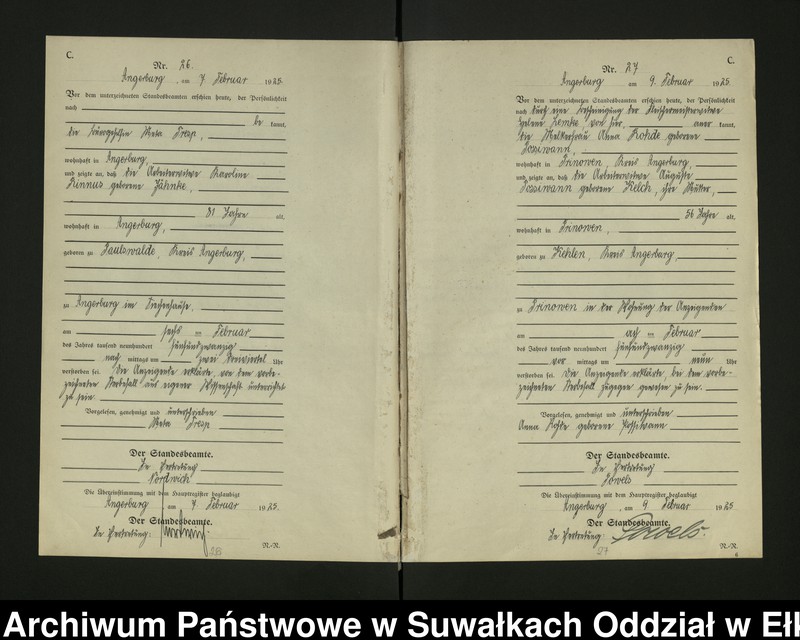 C.
Nr. 26.
Angerburg, am 7. Februar 1925.
Vor dem unterzeichneten Standesbeamten erschien heute, der Persönlichkeit
nach
be kannt,
die
wohnhaft in Angerburg,
und zeigte an, daß die Arbeiterwitwe Karoline
geborene Jähnke,
81 Jahre alt,
wohnhaft in Angerburg,
geboren zu Paulswalde, Kreis Angerburg,
zu Angerburg im Siechenhause,
am sechs ten Februar
des Jahres tausend neunhundert fünfundzwanzig
nach mittags um zwei dreiviertel Uhr
verstorben sei. Die Anzeigende erklärte, von dem vorbe-
zeichneten Sterbefall aus eigener Wissenschaft unterrichtet
zu sein.
Vorgelesen, genehmigt und unterschrieben
Meta
Der Standesbeamte.
In Vertretung
Die Übereinstimmung mit dem Hauptregister beglaubigt
Angerburg, am 7. Februar 1925.
Der Standesbeamte.
In Vertretung:
N.-N.
C.
Nr. 27
Angerburg am 9. Februar 1925
Vor dem unterzeichneten Standesbeamten erschien heute, der Persönlichkeit
nach durch eine Bescheinigung der
Helene Lemke, von hier, aner kannt,
die Melkersfrau Anna Rohde geborene
wohnhaft in Prinowen, Kreis Angerburg,
und zeigte an, daß die Arbeiterwitwe Auguste
geborene Kelch, ihre Mutter,
56 Jahre alt,
wohnhaft in Prinowen,
geboren zu Kehlen, Kreis Angerburg,
zu Prinowen in der Wohnung der Anzeigenden
am acht ten Februar
des Jahres tausend neunhundert fünfundzwanzig
vor mittags um neun Uhr
verstorben sei. Die Anzeigende erklärte, bei dem vorbe-
zeichneten Sterbefall zugegen gewesen zu sein.
Vorgelesen, genehmigt und unterschrieben
Anna Rohde geborene
Der Standesbeamte.
In Vertretung
Die Übereinstimmung mit dem Hauptregister beglaubigt
Angerburg, am 9. Februar 1925
Der Standesbeamte.
In Vertretung:
27
N.-N.
Archiwum Państwowe w Suwałkach Oddział w Eł